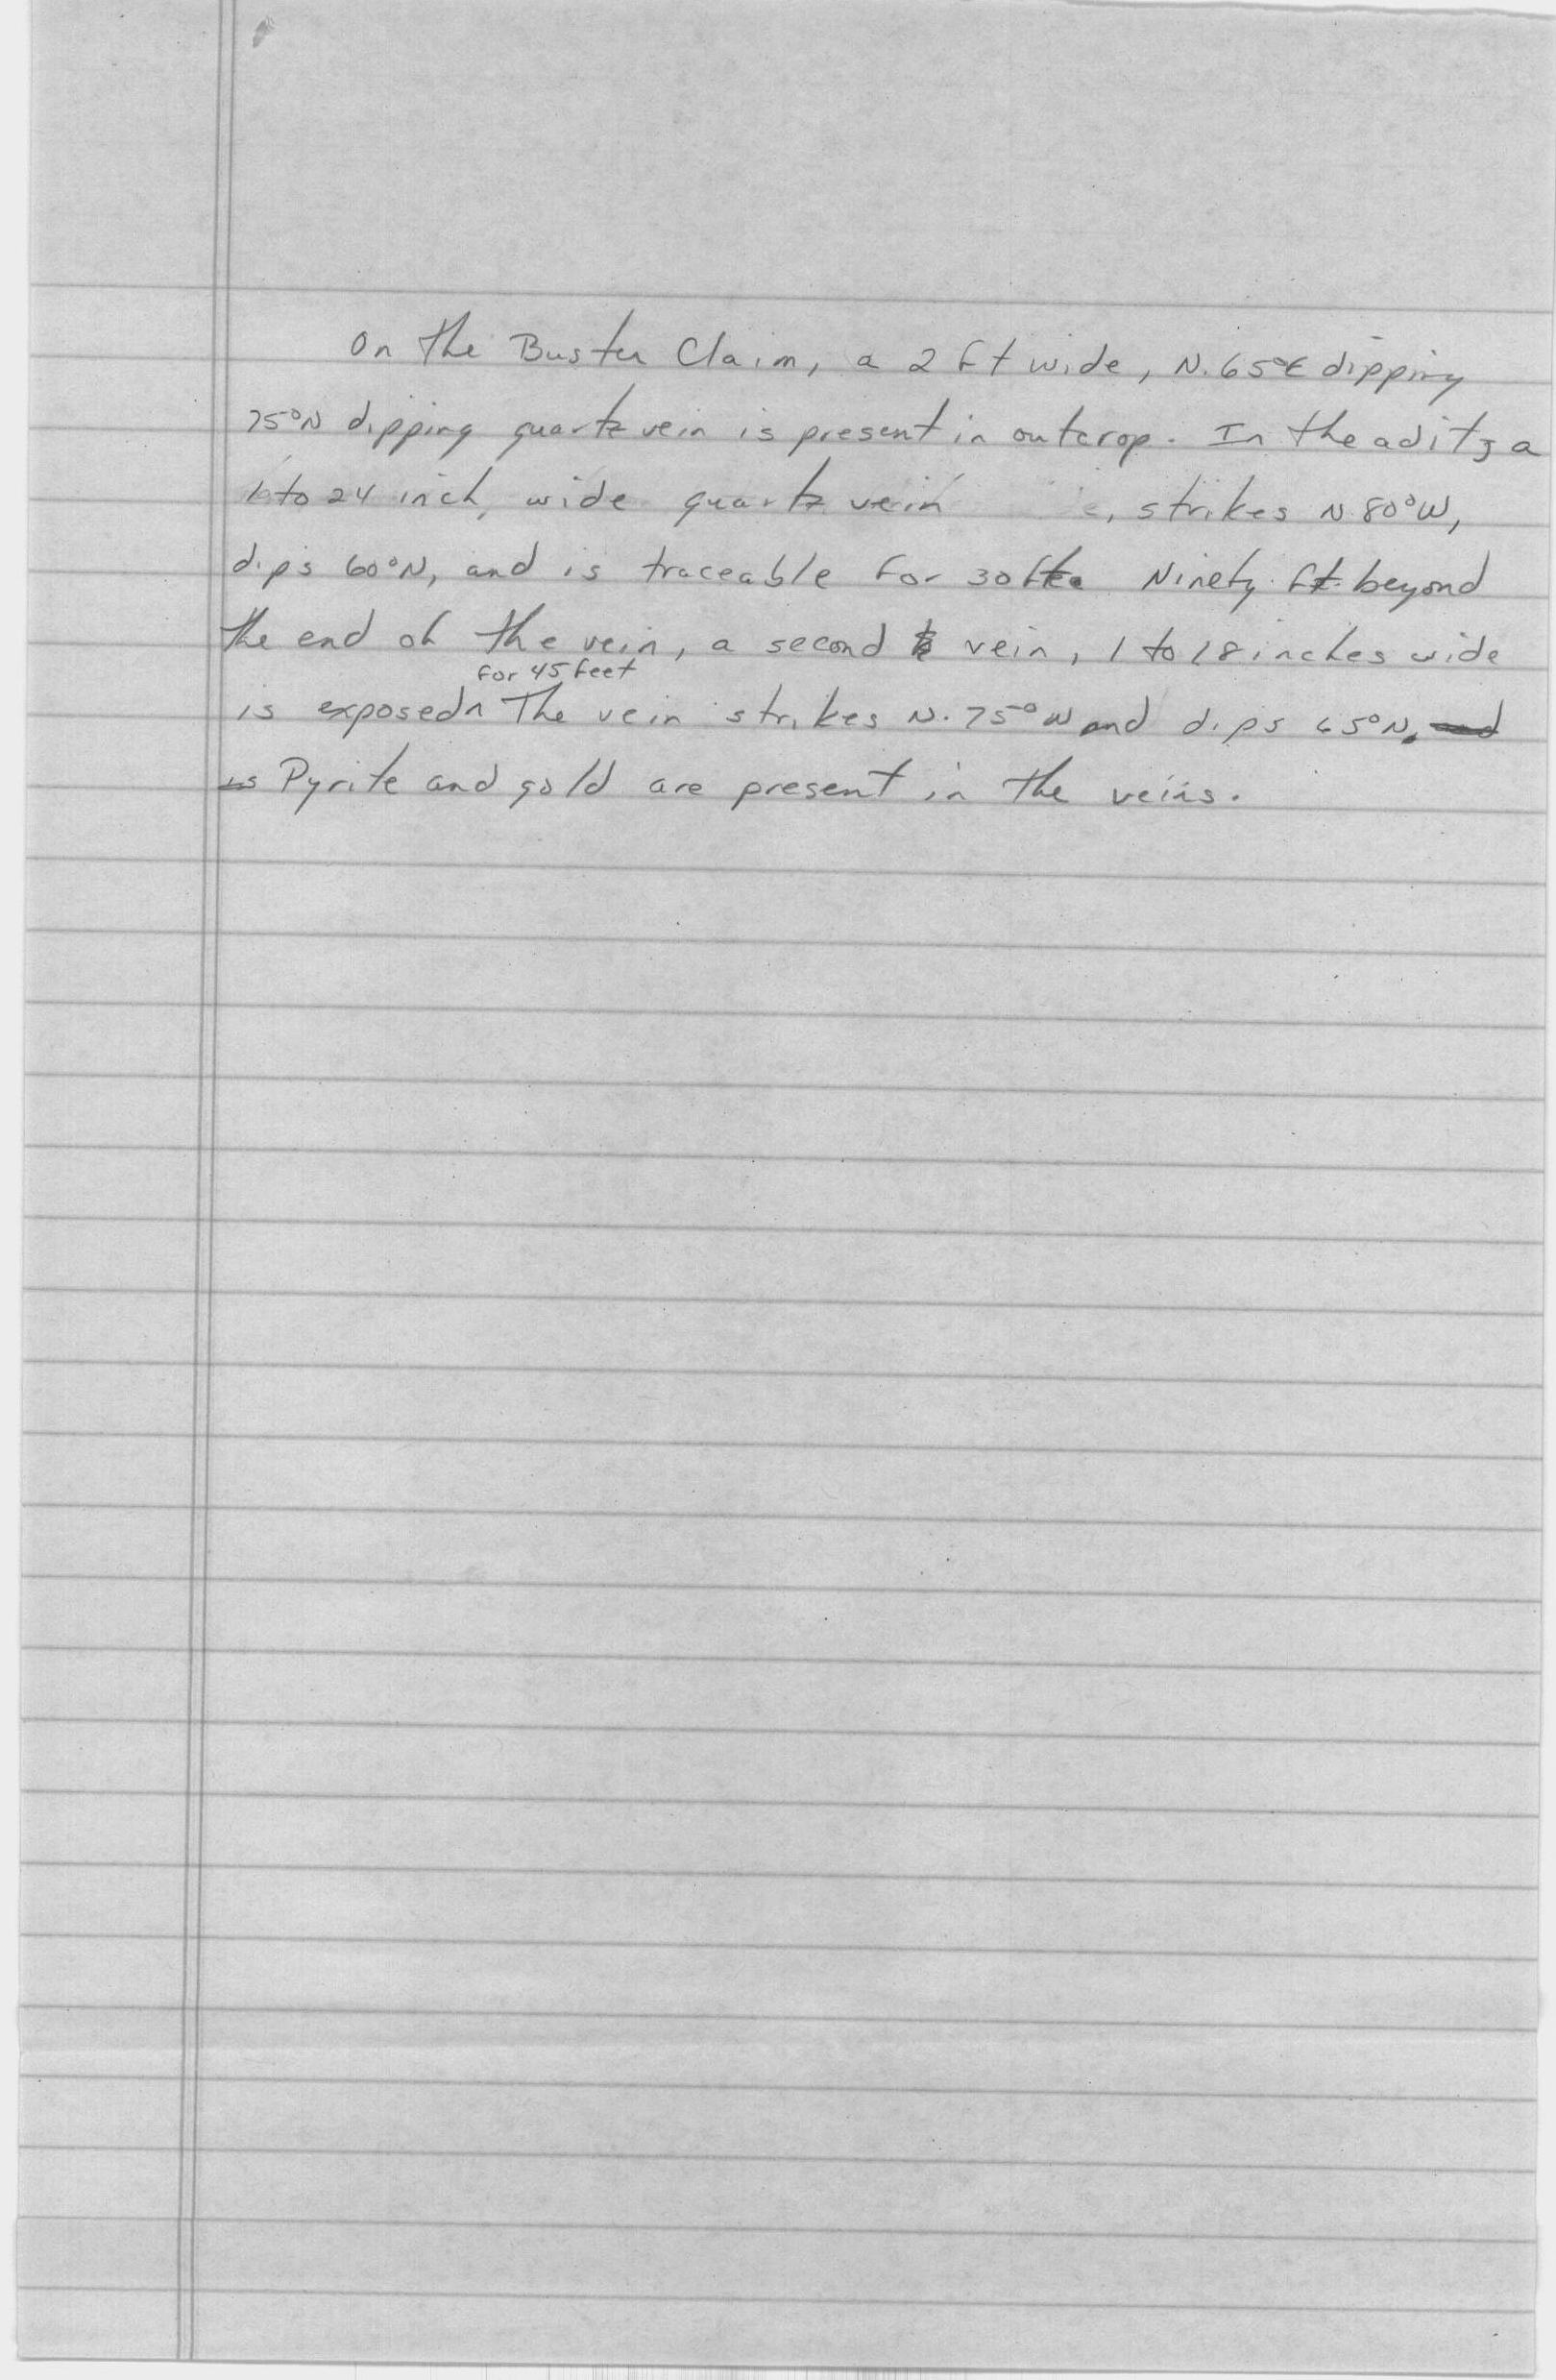 On the Buster Claim, a 2 ft wide, N. 65°E dipping
75°N dipping quartz vein is present in outcrop. In the adit, a
1 to 24 inch, wide quartz vein , strikes N. 80°W,
dips 60°N, and is traceable for 30 ft. Ninety ft. beyond
the end of the vein, a second vein, 1 to 18 inches wide
for 45 feet
is exposed^ The vein strikes N. 75°W and dips 65°N. and
is Pyrite and gold are present in the veins.